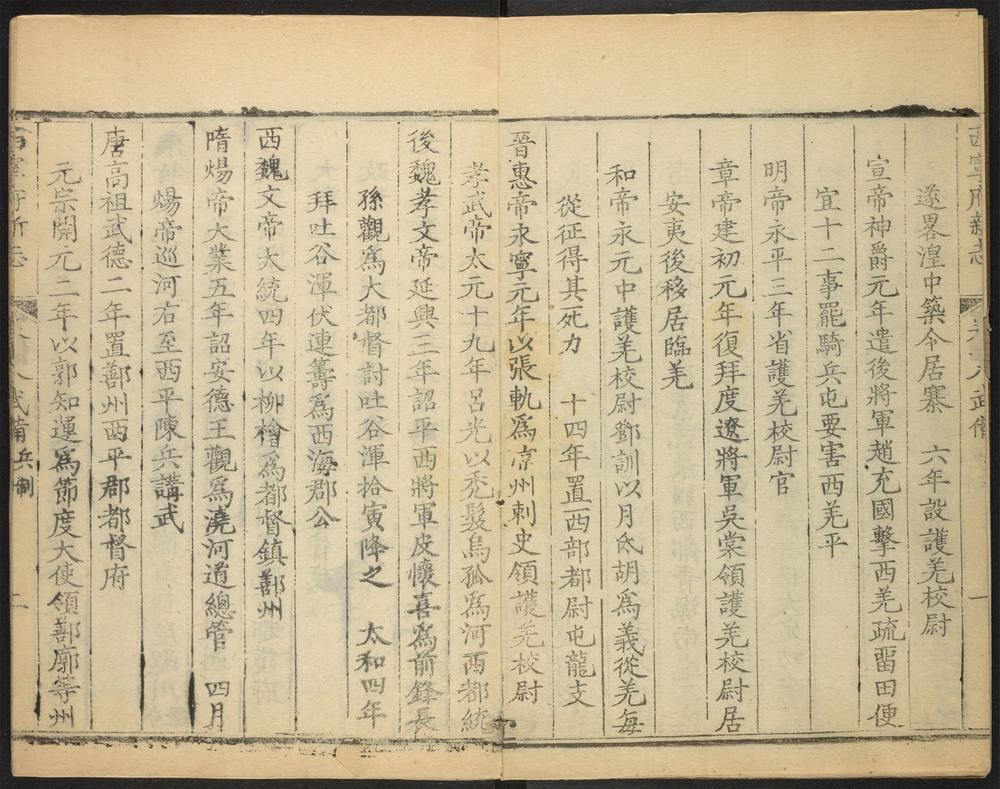 西寧府新志
卷 八 武備
一
遂畧湟中築令居寨　六年設護羌校尉
宣帝神爵元年遣後將軍趙充國擊西羌疏畱田便
宜十二事罷騎兵屯要害西羌平
明帝永平三年省護羌校尉官
章帝建初元年復拜度遼將軍吳棠領護羌校尉居
安夷後移居臨羌
和帝永元中護羌校尉鄧訓以月氐胡爲義從羌每
從征得其死力　十四年置西部都尉屯龍支
晉惠帝永寧元年以張軌爲凉州刺史領護羌校尉
孝武帝太元十九年呂光以禿髮烏孤爲河西都統
後魏孝文帝延興三年詔平西將軍皮懷喜爲前鋒長
孫觀爲大都督討吐谷渾拾寅降之　太和四年
拜吐谷渾伏連籌爲西海郡公
西魏文帝大統四年以柳檜爲都督鎮鄯州
隋煬帝大業五年詔安德王觀爲澆河道總管　四月
煬帝巡河右至西平陳兵講武
唐高祖武德二年置鄯州西平郡都督府
元宗開元二年以郭知運爲節度大使領鄯廓等州
西寧府新志
八 武備 兵制
二